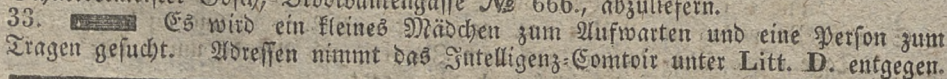 № 666., abzuliefern.
33. Es wird ein kleines Mädchen zum Aufwarten und eine Person zum
Tragen gesucht. Adressen nimmt das Intelligenz-Comtoir unter Litt. D. entgegen.